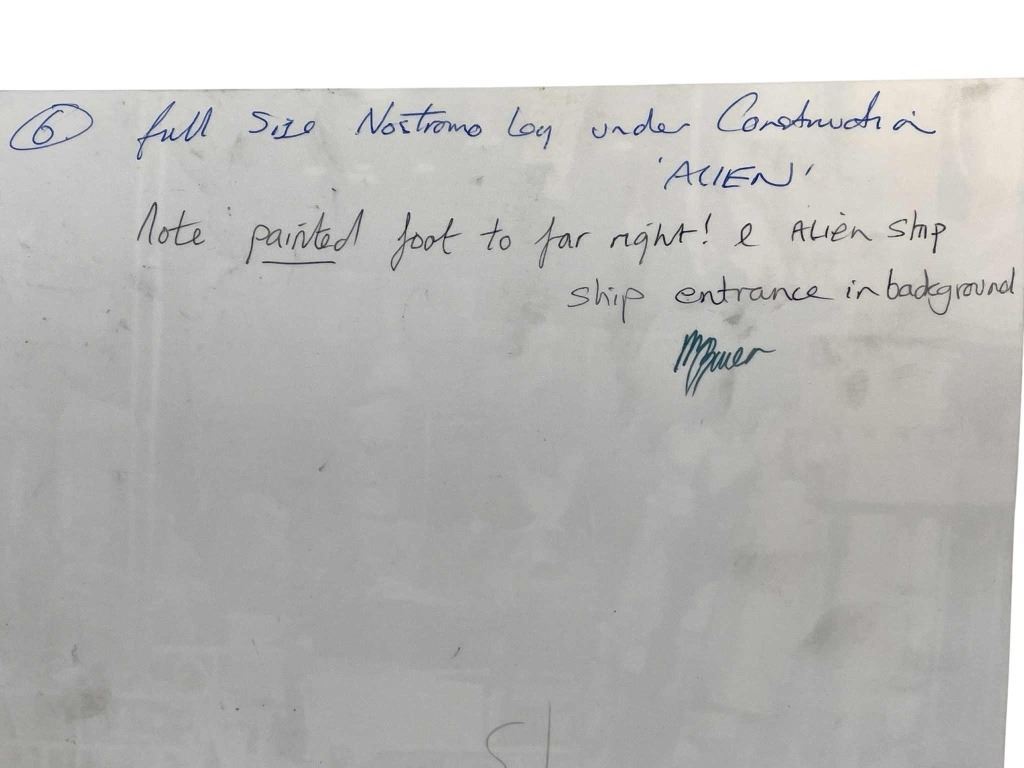 ⑥ full Size Nostromo Leg under Construction
'ALIEN'
Note painted foot to far right! & ALien Ship
ship entrance in background